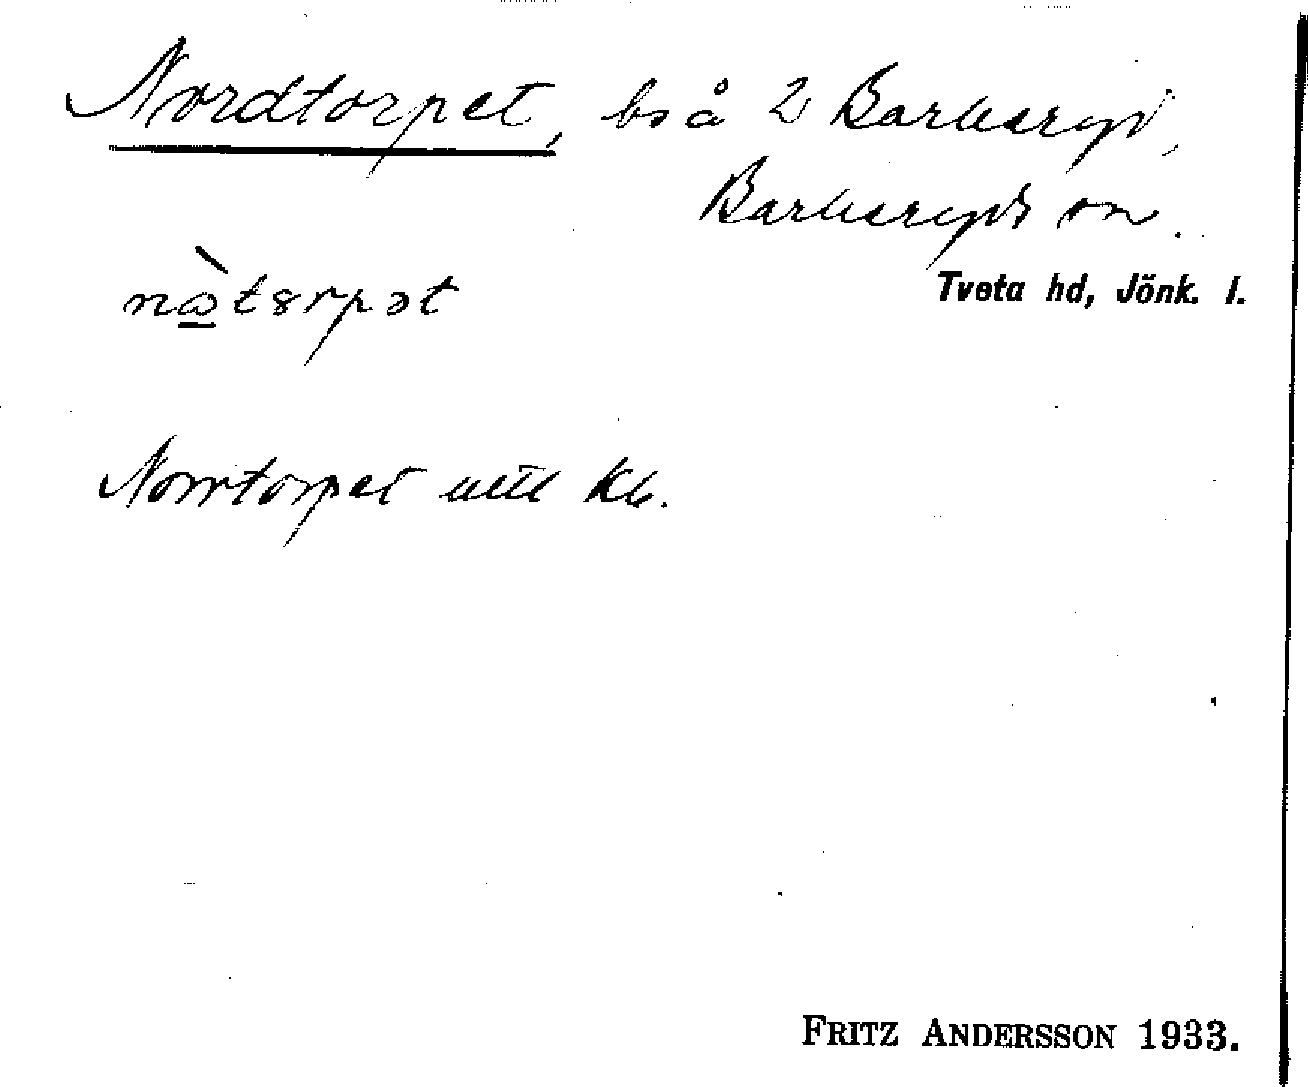 Nordtorpet, bs å 2 Barkeryd,
Barkeryds sn.
Tveta hd, Jönk. l.
Norrtorpet uttl Kb.
FRITZ ANDERSSON 1933.